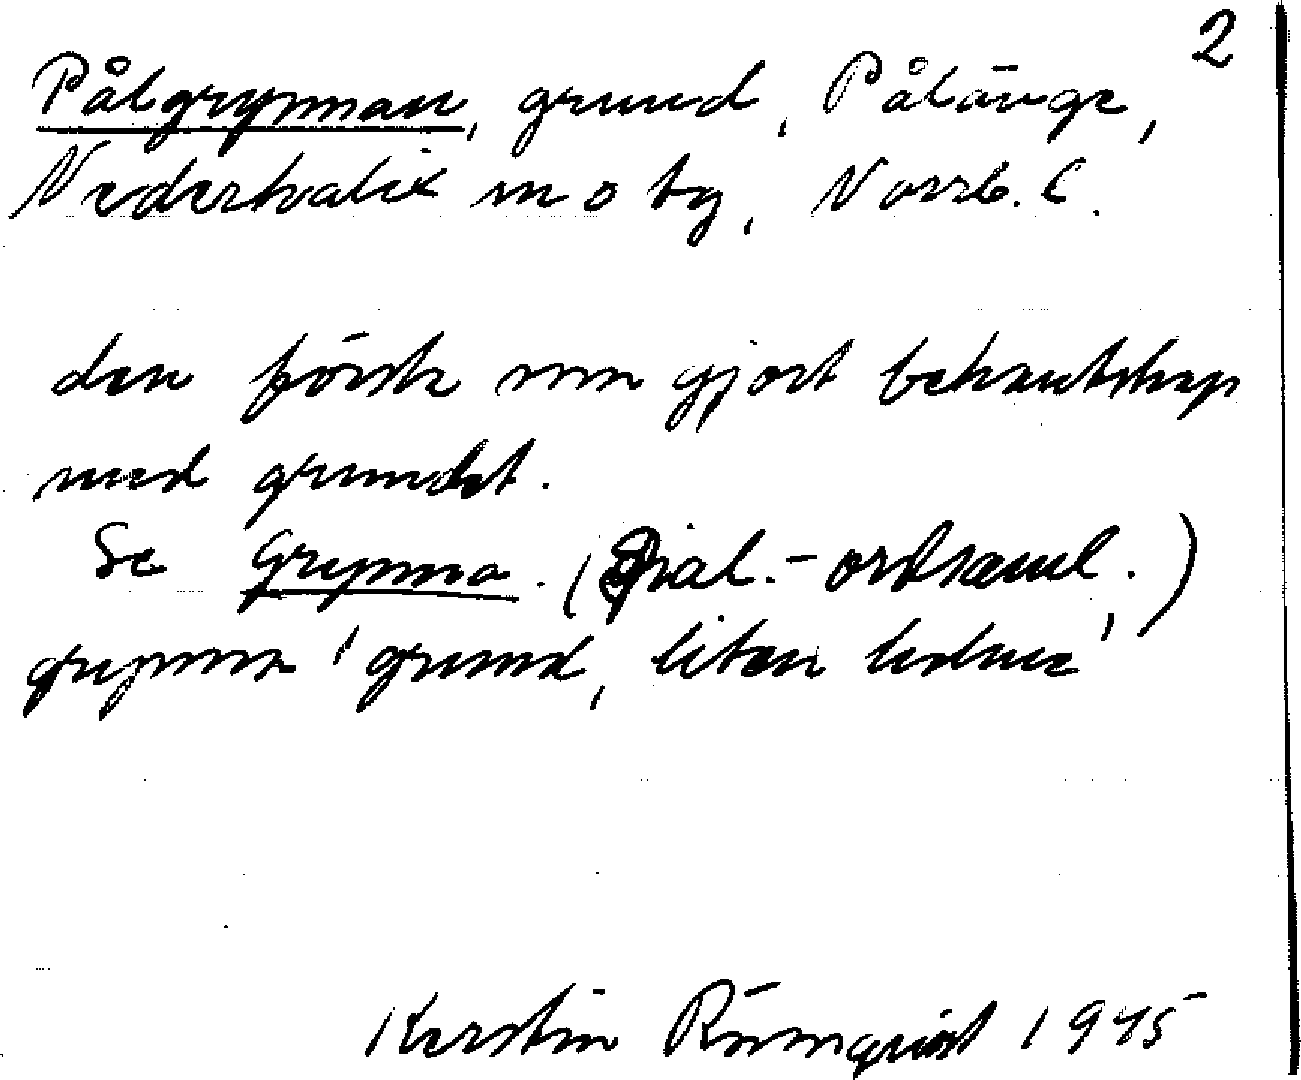 2
Pålgrynnan, grund, Pålänge,
Nederkalix sn o tg, Norrb. l.
den första som gjort bekantskap
med grundet.
Se Grynna. (Dial.-ordsaml.)
grynna 'grund, liten
Kerstin Rönnquist 1945